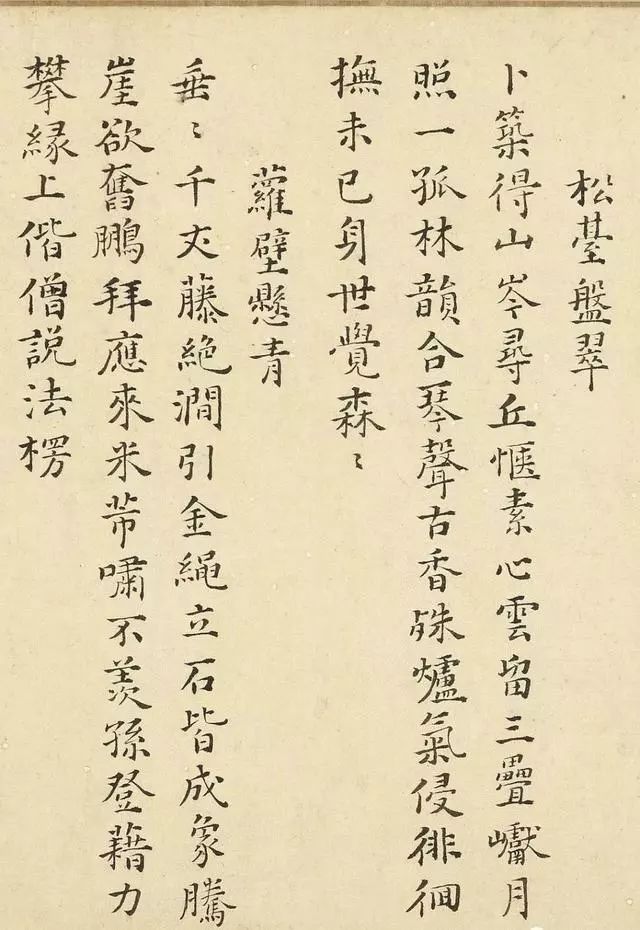 松臺盤翠
卜築得山岑尋丘愜素心雲留三疊巘月
照一孤林韻合琴聲古香殊爐氣侵徘徊
撫未已身世覺森〻
蘿壁懸青
垂〻千丈藤絶澗引金繩立石皆成象騰
崖欲奮鵬拜應來米芾嘯不羨孫登藉力
攀緣上偕僧説法楞